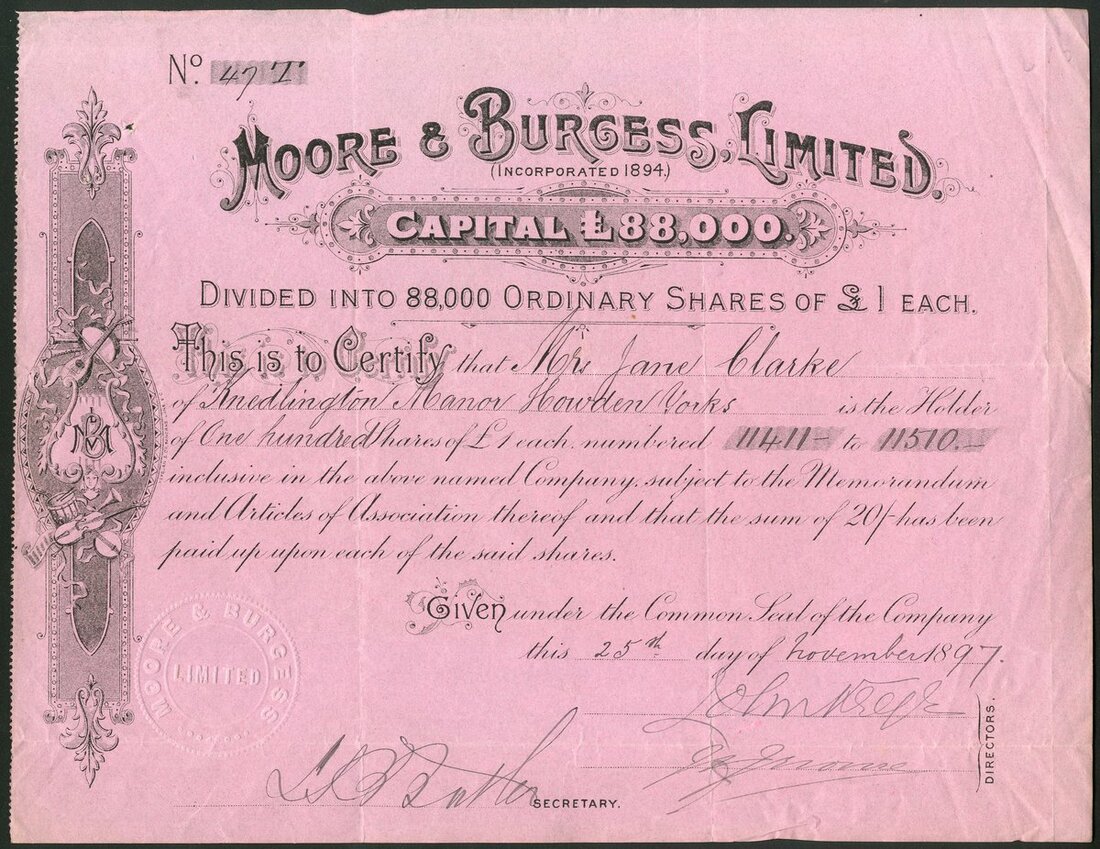 No. 47 T
MOORE & BURGESS, LIMITED.
(INCORPORATED 1894.)
CAPITAL £88,000.
DIVIDED INTO 88,000 ORDINARY SHARES OF £1 EACH.
This is to Certify that Mrs Jane Clarke
of Knedlington Manor Howden Yorks is the Holder
of One hundred Shares of £1 each, numbered 11411- to 11510.-
inclusive in the above named Company, subject to the Memorandum
and Articles of Association thereof and that the sum of 20/- has been
paid up upon each of the said shares.
Given under the Common Seal of the Company
this 25th day of November 1897.
MOORE & BURGESS
LIMITED
DIRECTORS.
SECRETARY.